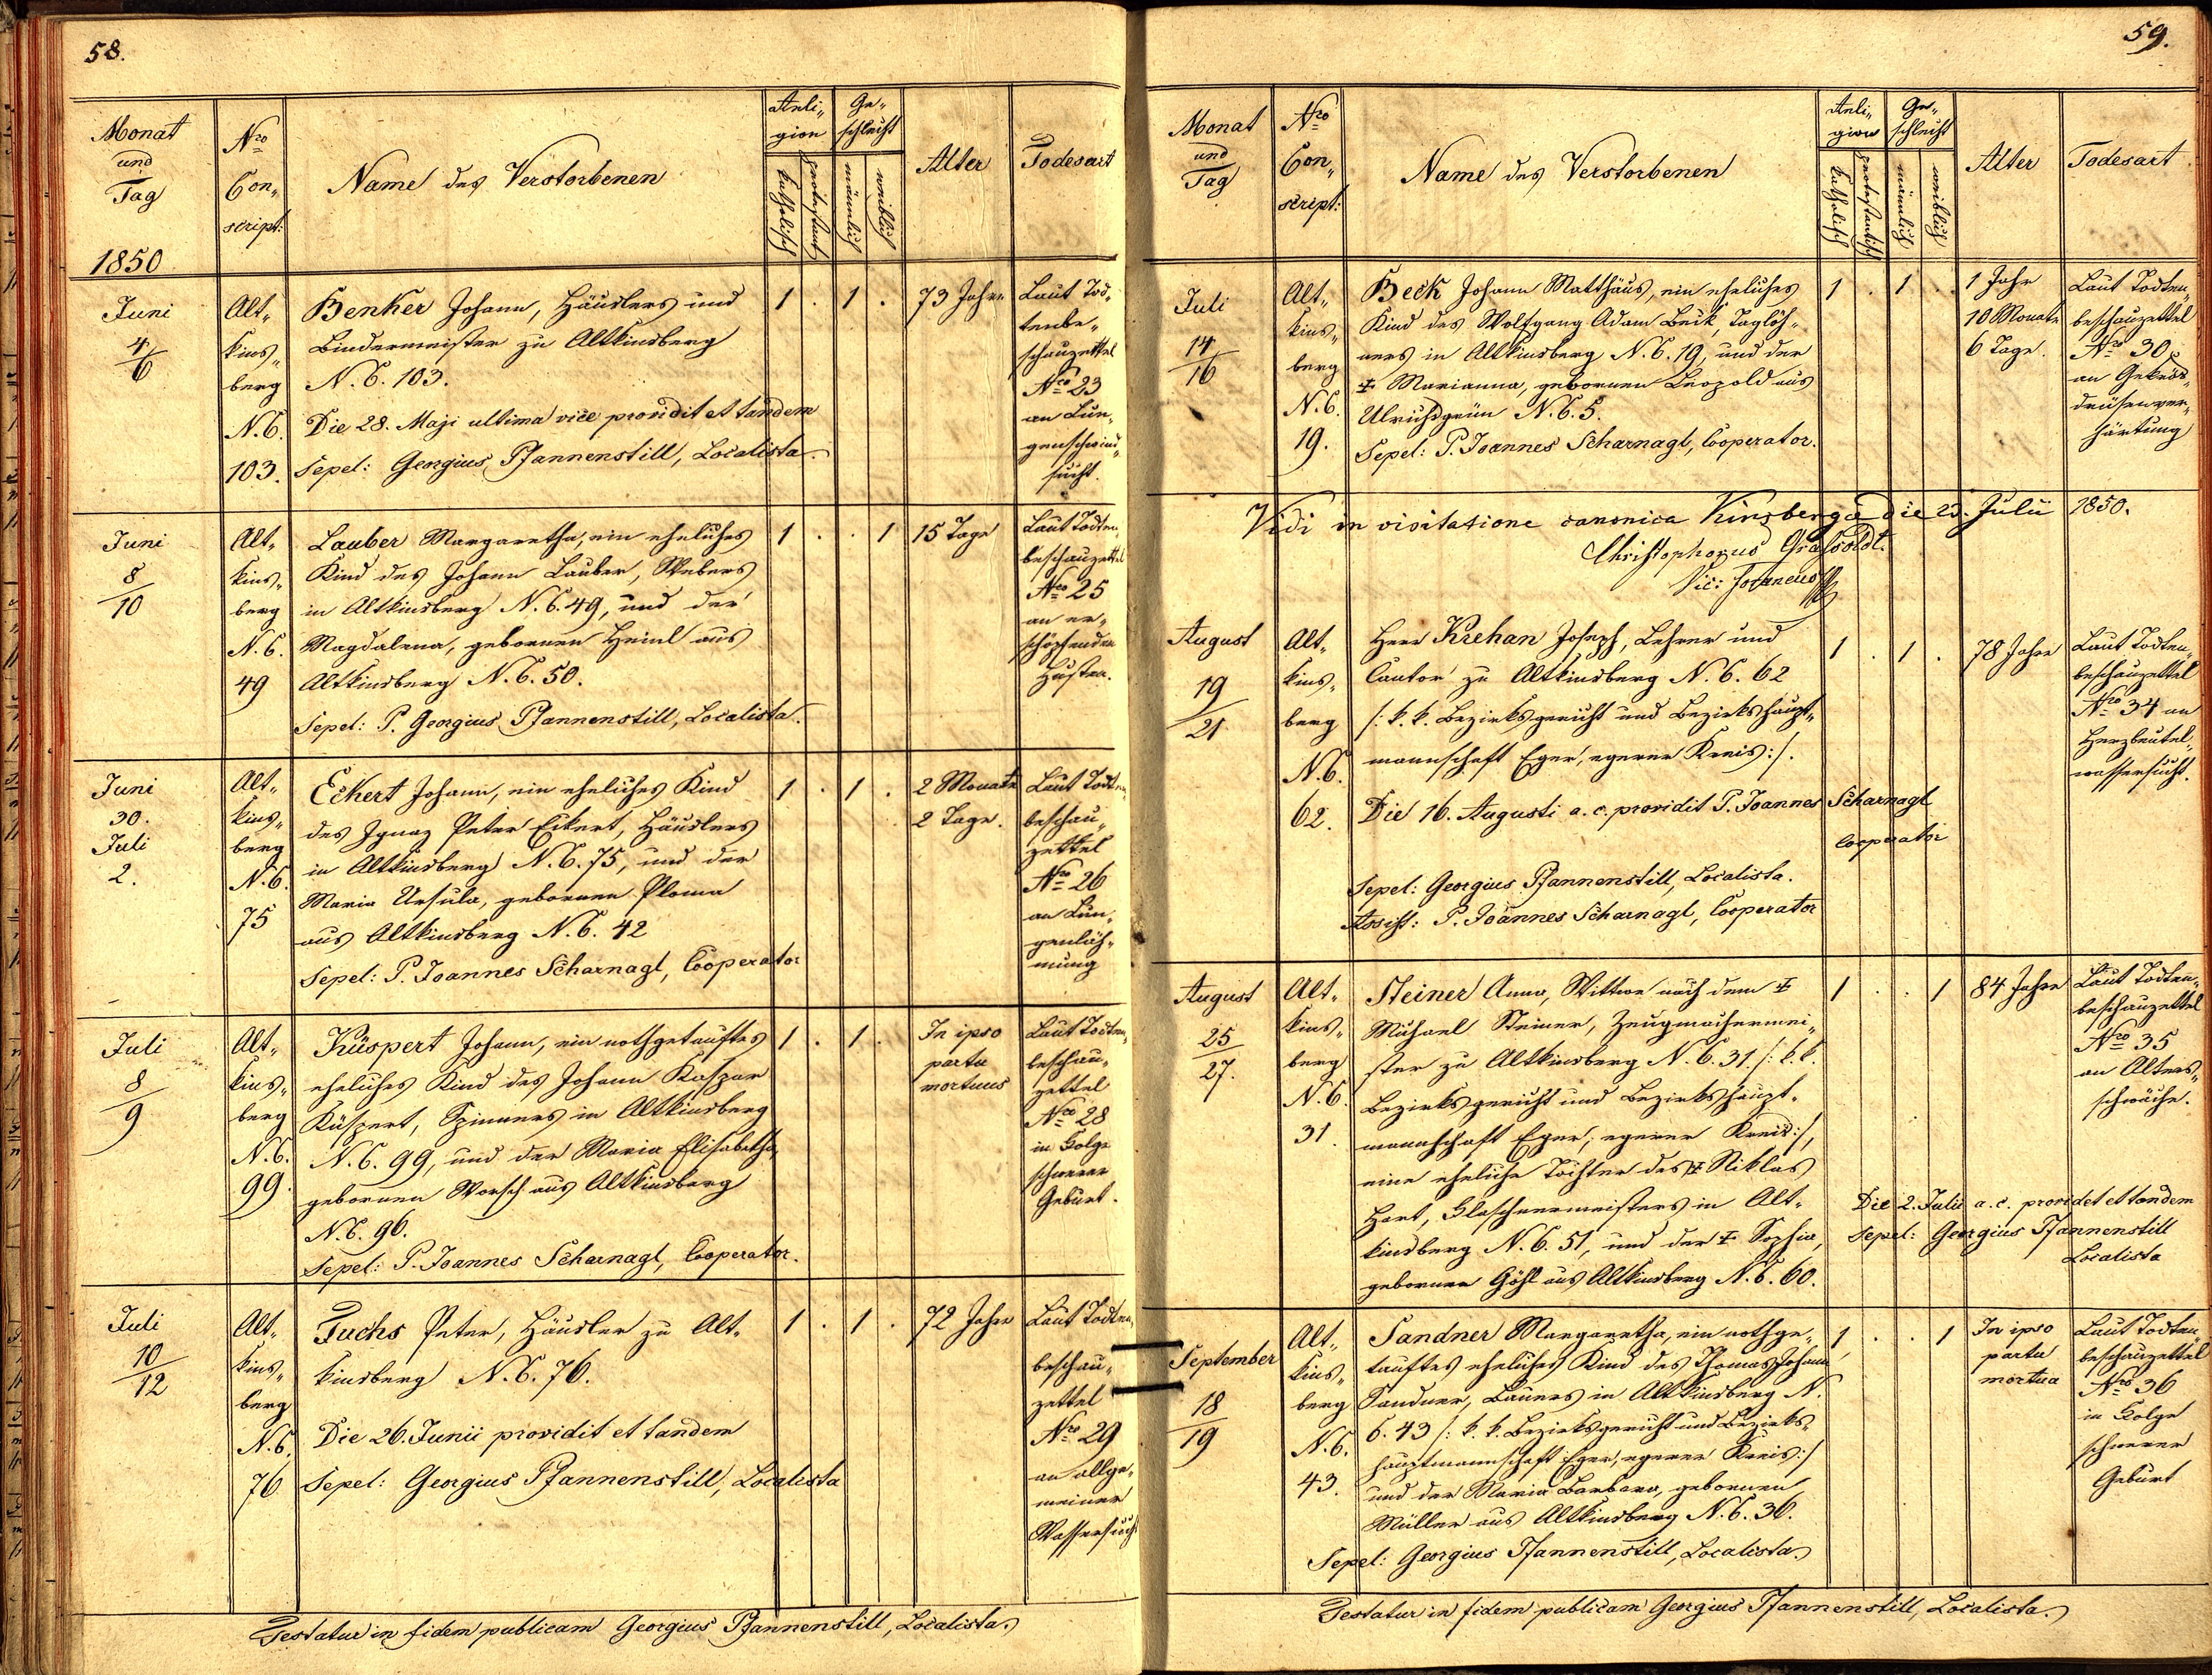 58.
Monat
und
Tag
1850
Nro
Con„
script:
Name des Verstorbenen
Reli„
gion
katholisch
protestant
Ge„
schlecht
männlich
weiblich
Alter
Todesart
Juni
4/6
Alt„
kins„
berg
N.C.
103.
Benker Johann, Häuslers und
Bindermeister zu Altkinsberg
N.C. 103.
Die 28. Maji ultima vice providit et tandem
Sepel: Georgius Pfannenstill, Localista.
1 . 1 .
73 Jahre
Laut Tod„
tenbe„
schauzettel
Nro 23
an Lun„
genschwind„
sucht.
Juni
8/10
Alt„
kins„
berg
N.C.
49
Lauber Margaretha, ein eheliches
Kind des Johann Lauber, Webers
in Altkinsberg N.C. 49, und der
Magdalena, gebornen Heinl aus
Altkinsberg N.C. 50.
Sepel: P. Georgius Pfannenstill, Localista.
1 . . 1
15 Tage
Laut Todten„
beschauzettel
Nro 25
an er„
schöpfenden
Husten.
Juni
30.
Juli
2.
Alt„
kins„
berg
N.C.
75
Eckert Johann, ein eheliches Kind
des Ignaz Peter Eckert, Häuslers
in Altkinsberg N.C. 75, und der
Maria Ursula, gebornen Ploma
aus Altkinsberg N.C. 42
Sepel: P. Joannes Scharnagl, Cooperator
1 . 1 .
2 Monate
2 Tage.
Laut Todten„
beschau„
zettel
Nro 26
an Lun„
genläh„
mung
Juli
8/9
Alt„
kins„
berg
N.C.
99.
Küspert Johann, ein nothgetauftes
eheliches Kind des Johann Kaspar
Küspert, Spinners in Altkinsberg
N.C. 99, und der Maria Elisabetha,
gebornen Worsch aus Altkinsberg
N.C. 96.
Sepel: P. Joannes Scharnagl, Cooperator.
1 . 1 .
In ipso
partu
mortuus
Laut Todten„
beschau„
zettel
Nro 28
in Folge
schwerer
Geburt.
Juli
10/12
Alt„
kins„
berg
N.C.
76
Fuchs Peter, Häusler zu Alt„
kinsberg N.C. 76.
Die 26. Junii providit et tandem
Sepel: Georgius Pfannenstill, Localista
1 . 1 .
72 Jahre
Laut Todten„
beschau„
zettel
Nro 29
an allge„
meiner
Wassersucht
Testatur in fidem publicam Georgius Pfannenstill, Localista.
59.
Monat
und
Tag
Nro
Con„
script:
Name des Verstorbenen
Reli„
gion
katholisch
protestantisch
Ge„
schlecht
männlich
weiblich
Alter
Todesart
Juli
14/16
Alt„
kins„
berg
N.C.
19.
Beck Johann Matthäus, ein eheliches
Kind des Wolfgang Adam Beck, Taglöh„
ners in Altkinsberg N.C. 19, und der
‡ Marianna, gebornen Leopold aus
Ulrichsgrün N.C. 5.
Sepel: P. Joannes Scharnagl, Cooperator.
1 . 1 .
1 Jahr
10 Monate
6 Tage.
Laut Todten„
beschauzettel
Nro 30
an Gekrös„
drüsenver„
härtung
Vidi in visitatione canonica Kinsbergae die 25. Julii 1850.
Christophorus
Vic: Foraneus
August
19/21.
Alt„
kins„
berg
N.C.
62.
Herr Krehan Joseph, Lehrer und
Cantor zu Altkinsberg N.C. 62
/: k. k. Bezirksgericht und Bezirkshaupt„
mannschaft Eger, egerer Kreis:/.
Die 16. Augusti a. c. providit P. Joannes Scharnagl
Cooperator
Sepel: Georgius Pfannenstill, Localista.
Assist: P. Joannes Scharnagl, Cooperator
1 . 1 .
78 Jahre
Laut Todten„
beschauzettel
Nro 34 an
Herzbeutel„
wassersucht.
August
25/27.
Alt„
kins„
berg
N.C.
31.
Steiner Anna, Wittwe nach dem ‡
Michael Steiner, Zeugmachermei„
ster zu Altkinsberg N.C. 31 /: k. k.
Bezirksgericht und Bezirkshaupt„
mannschaft Eger, egerer Kreis:/,
eine eheliche Tochter des ‡ Niklas
Hart, Flaschnermeisters in Alt„
kinsberg N.C. 51, und der ‡ Sophia,
gebornen Göhl aus Altkinsberg N.C. 60.
1 . . 1
84 Jahre
Laut Todten„
beschauzettel
Nro 35
an Alters„
schwäche.
Die 2. Julii a. c. providet et tandem
Sepel: Georgius Pfannenstill
Localista
September
18/19
Alt„
kins„
berg
N.C.
43.
Sandner Margaretha, ein nothge„
tauftes eheliches Kind des Thomas Johann
Sandner, Bauers in Altkinsberg N.
C. 43 /: k. k. Bezirksgericht und Bezirks„
hauptmannschaft Eger, egerer Kreis:/
und der Maria Barbara, gebornen
Müller aus Altkinsberg N.C. 36.
Sepel: Georgius Pfannenstill, Localista.
1 . . 1
In ipso
partu
mortua
Laut Todten„
beschauzettel
Nro 36
in Folge
schwerer
Geburt
Testatur in fidem publicam Georgius Pfannenstill, Localista.